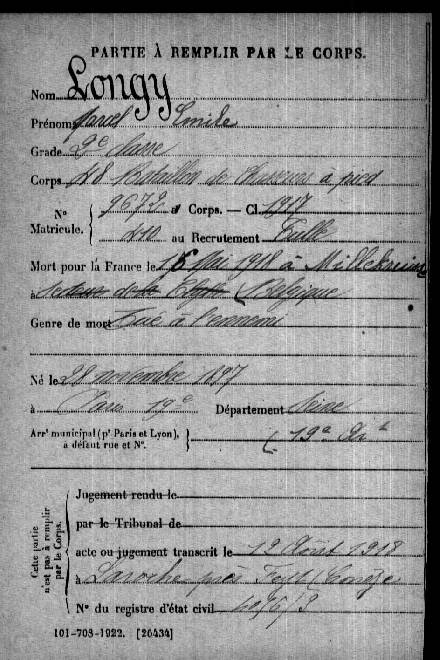 PARTIE À REMPLIR PAR LE CORPS.
Nom Longy
Prénoms Marcel Emile
Grade 2e classe
Corps 48 Bataillon de Chasseurs à pied
N° Matricule. { 9672 au Corps. — Cl. 1917
410 au Recrutement Tulle
Mort pour la France le 15 Mai 1918 à Millekruisse
(Belgique)
Genre de mort Tué à l'ennemi
Né le 28 novembre 1897
à Paris 19e Département Seine
Arrt municipal (pr Paris et Lyon), à défaut rue et N°. } 19e Art
Cette partie n'est pas à remplir par le Corps.
Jugement rendu le
par le Tribunal de
acte ou jugement transcrit le 12 Août 1918
à Laroche près Feyt (Corrèze
N° du registre d'état civil
101-708-1922. [26434]